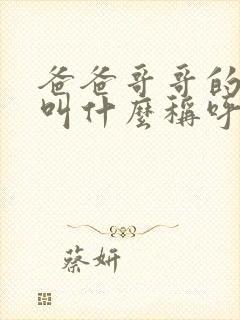 爸爸哥哥的
叫什麼稱呼
蔡妍